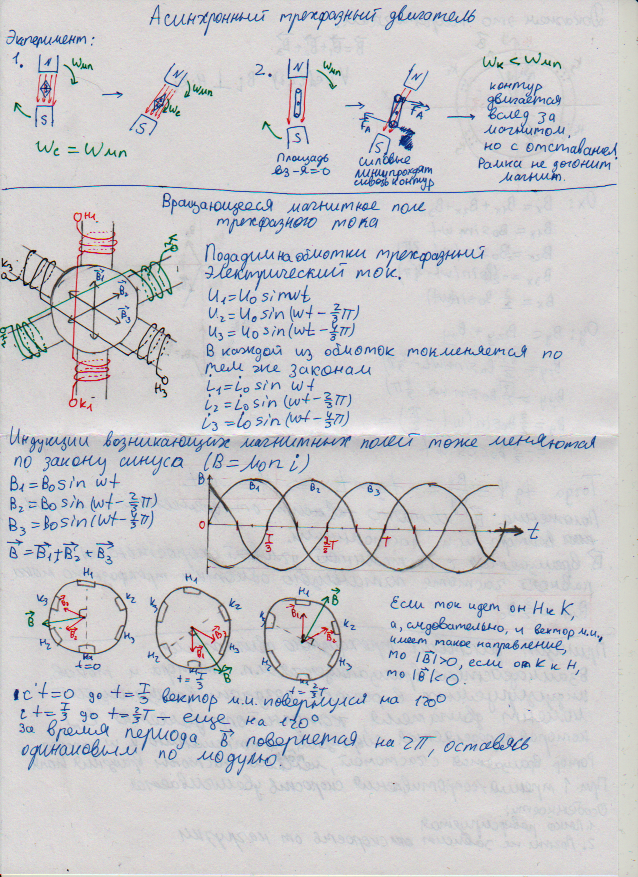 Асинхронный трехфазный двигатель
Эксперимент:
1.
N
ωмп
S
N
ωмп
ωс
S
ωс = ωмп
2.
N
ωмп
S
Площадь
вз-я=0
N
FА
FА
S
силовые
линии проходят
сквозь контур
ωк < ωмп
контур
двигается
вслед за
магнитом,
но с отставанием.
Рамка не догонит
магнит.
Вращающееся магнитное поле
трехфазного тока
H1
K3
B1
B2
B3
H3
K1
Подадим на обмотки трехфазный
электрический ток.
U1=U0 sinωt
U2=U0 sin(ωt - 2/3π)
U3=U0 sin(ωt - 4/3π)
В каждой из обмоток ток меняется по
тем же законам
i1=i0 sin ωt
i2=i0 sin(ωt - 2/3π)
i3=i0 sin(ωt - 4/3π)
Индукции возникающих магнитных полей тоже меняются
по закону синуса (B=μ0 n i)
B1=B0 sin ωt
B2=B0 sin(ωt - 2/3π)
B3=B0 sin(ωt - 4/3π)
B=B1+B2+B3
B
B1
B2
B3
0
T/3
2/3T
T
t
H1
K3
K2
B
B3
B2
H2
H3
K1
t=0
H1
K3
K2
B1
B3
B
H2
H3
K1
t=T/3
H1
K3
K2
B
B1
B2
H2
H3
K1
t=2/3T
Если ток идет от H к K,
а, следовательно, и вектор м.и.
имеет такое направление,
то |B|>0, если от K к H,
то |B|<0.
• с t=0 до t=T/3 вектор м.и. повернулся на 120°
с t=T/3 до t=2/3T - еще на 120°
за время периода B повернется на 2π, оставаясь
одинаковым по модулю.